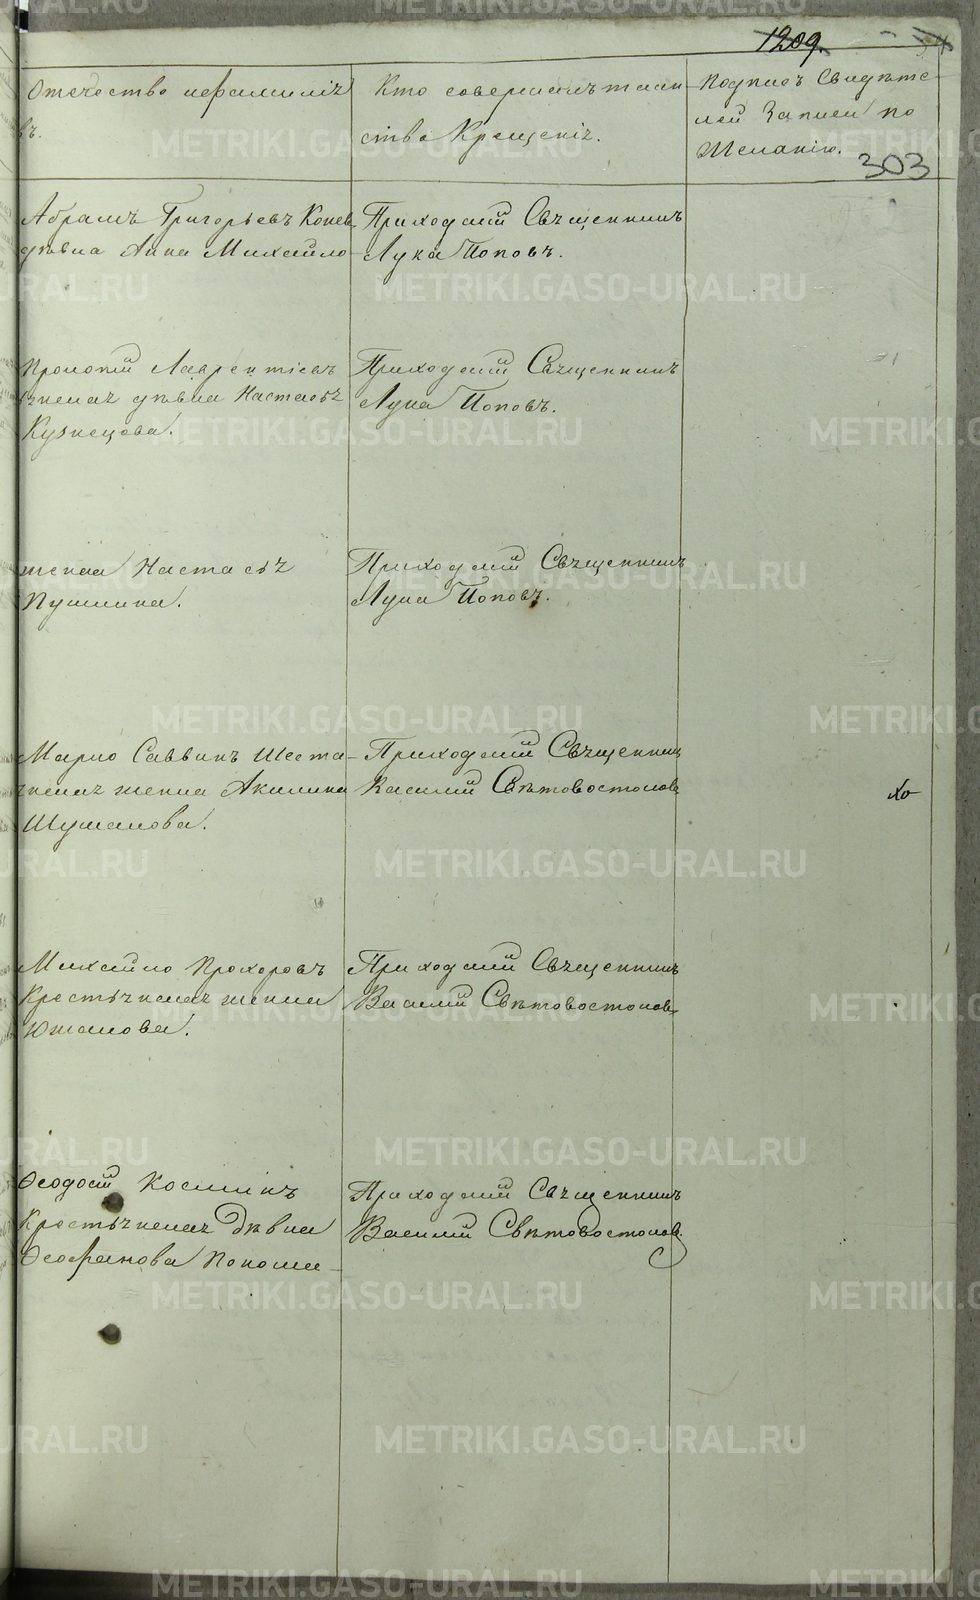 1209.
303
Отечество ифамилія
въ.
Кто совершалъ таин
ство Крещенія.
Подпись Свидѣте-
лей Записи по
Желанію.
Абрамъ Григорьевъ Конев
дѣвка Анна Михайло-
Приходскій Священникъ
Лука Поповъ.
Прокопій Лаврентіевъ
дѣвка Настасья
Кузнецова.
Приходскій Священникъ
Лука Поповъ.
Настасья
Пушкина.
Приходскій Священникъ
Лука Поповъ.
Марко Саввинъ Шеста-
жена Акилина
Шушакова.
Приходскій Священник
Василій Свѣтовостоков
Михайло Прохоровъ
Крестьянская жена
Южакова.
Приходскій Священникъ
Василій Свѣтовостоков
Ѳеодосій Косминъ
Крестьянская Дѣвка
Ѳеофанова Покоши-
Приходскій Священникъ
Василій Свѣтовостоков.
METRIKI.GASO-URAL.RU